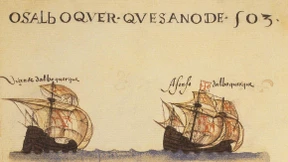 OSALBOQVER · QVESANODE · 503 ·
Vicente dalbuquerque
Afonso dalbuquerque